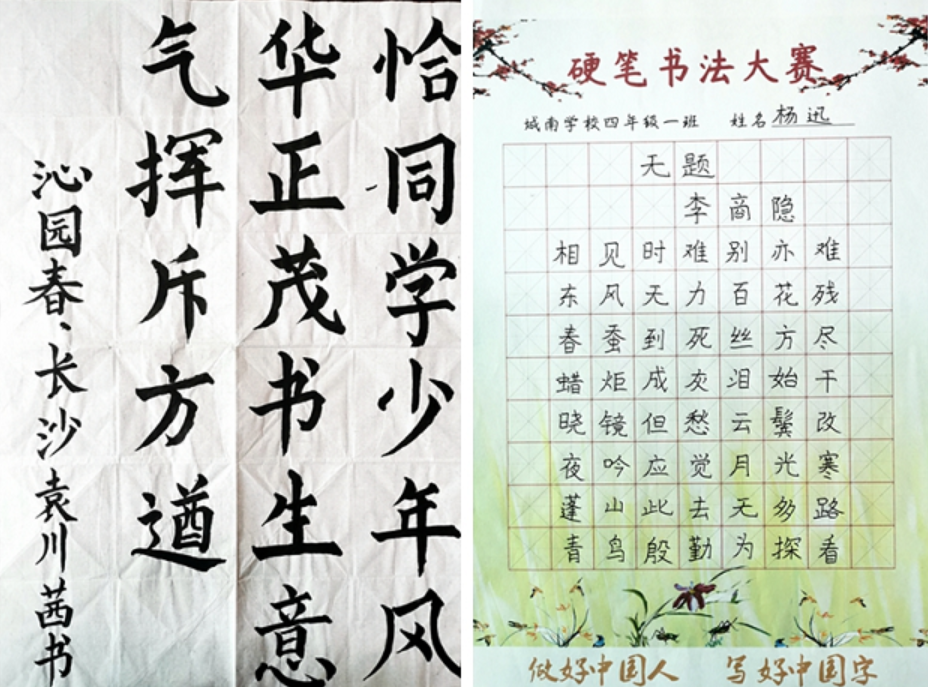 恰同学少年风
华正茂书生意
气挥斥方遒
沁园春、长沙 袁川茜书
硬笔书法大赛
城南学校四年级一班 姓名杨迅
无题
李商隐
相见时难别亦难
东风无力百花残
春蚕到死丝方尽
蜡炬成灰泪始干
晓镜但愁云鬓改
夜吟应觉月光寒
蓬山此去无多路
青鸟殷勤为探看
做好中国人 写好中国字